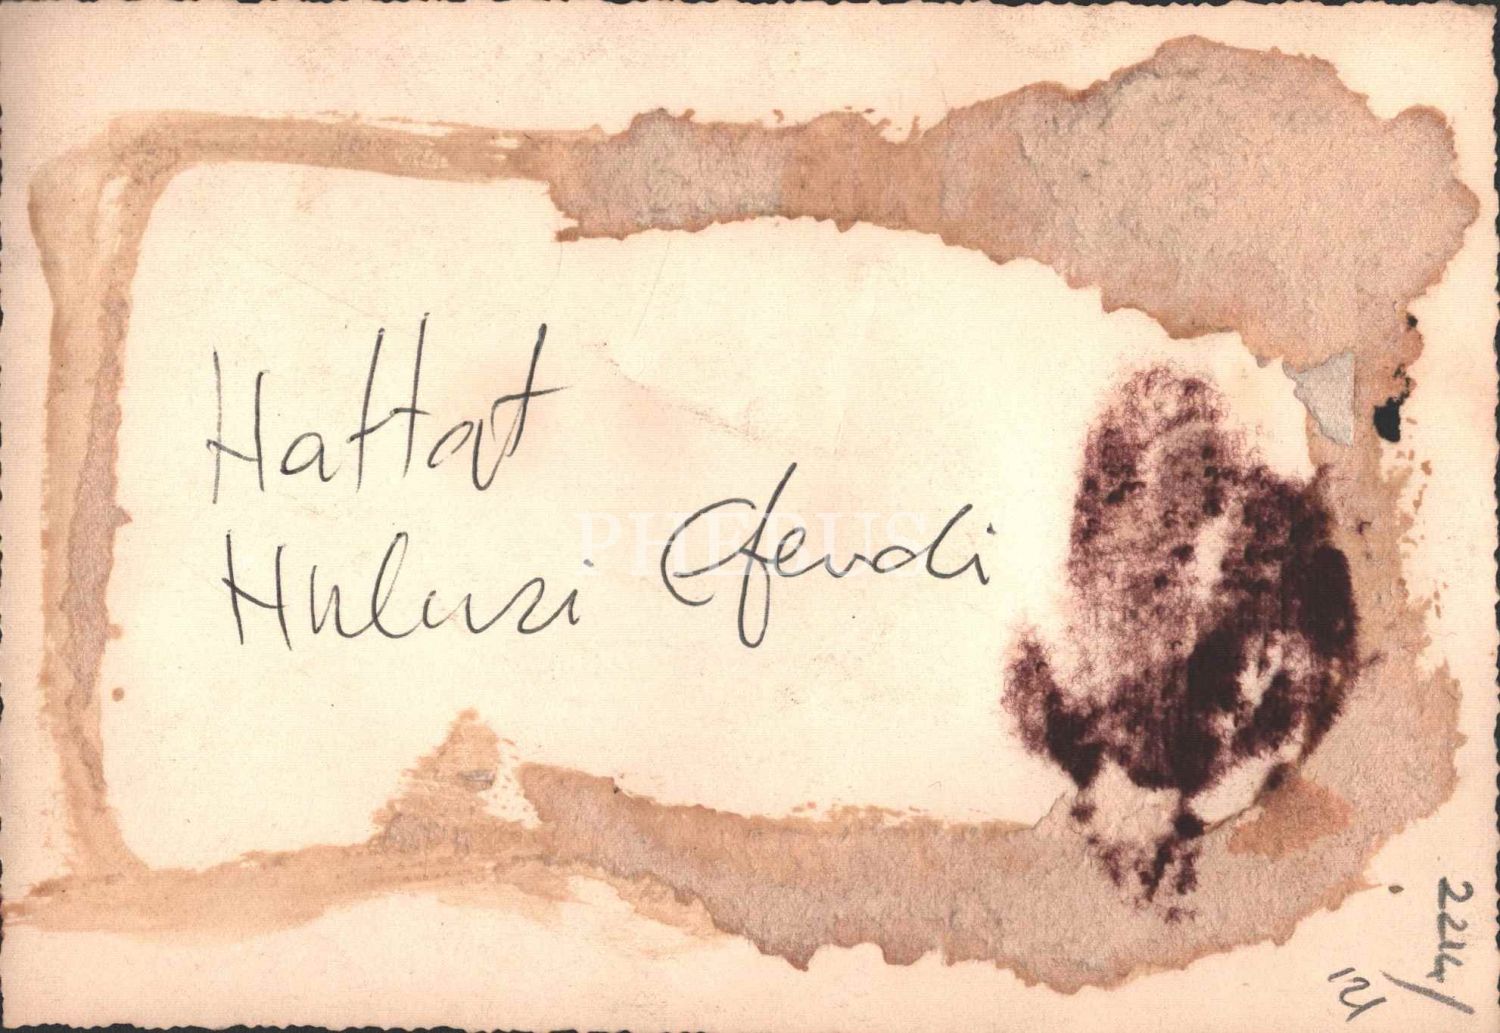 Hattat
Hulusi Efendi
PHEBUS
2214/
121